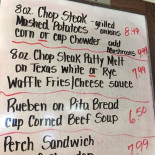 8oz. Chop Steak - grilled onions
Mashed Potatoes 8.49
corn or cup Chowder add Mushrooms
8oz Chop Patty Melt 4.99
on Texas White or Rye 7.99
Waffle Fries/Cheese sauce
Rueben on Pita Bread
cup Corned Beef Soup 6.50
Perch Sandwich 7.99